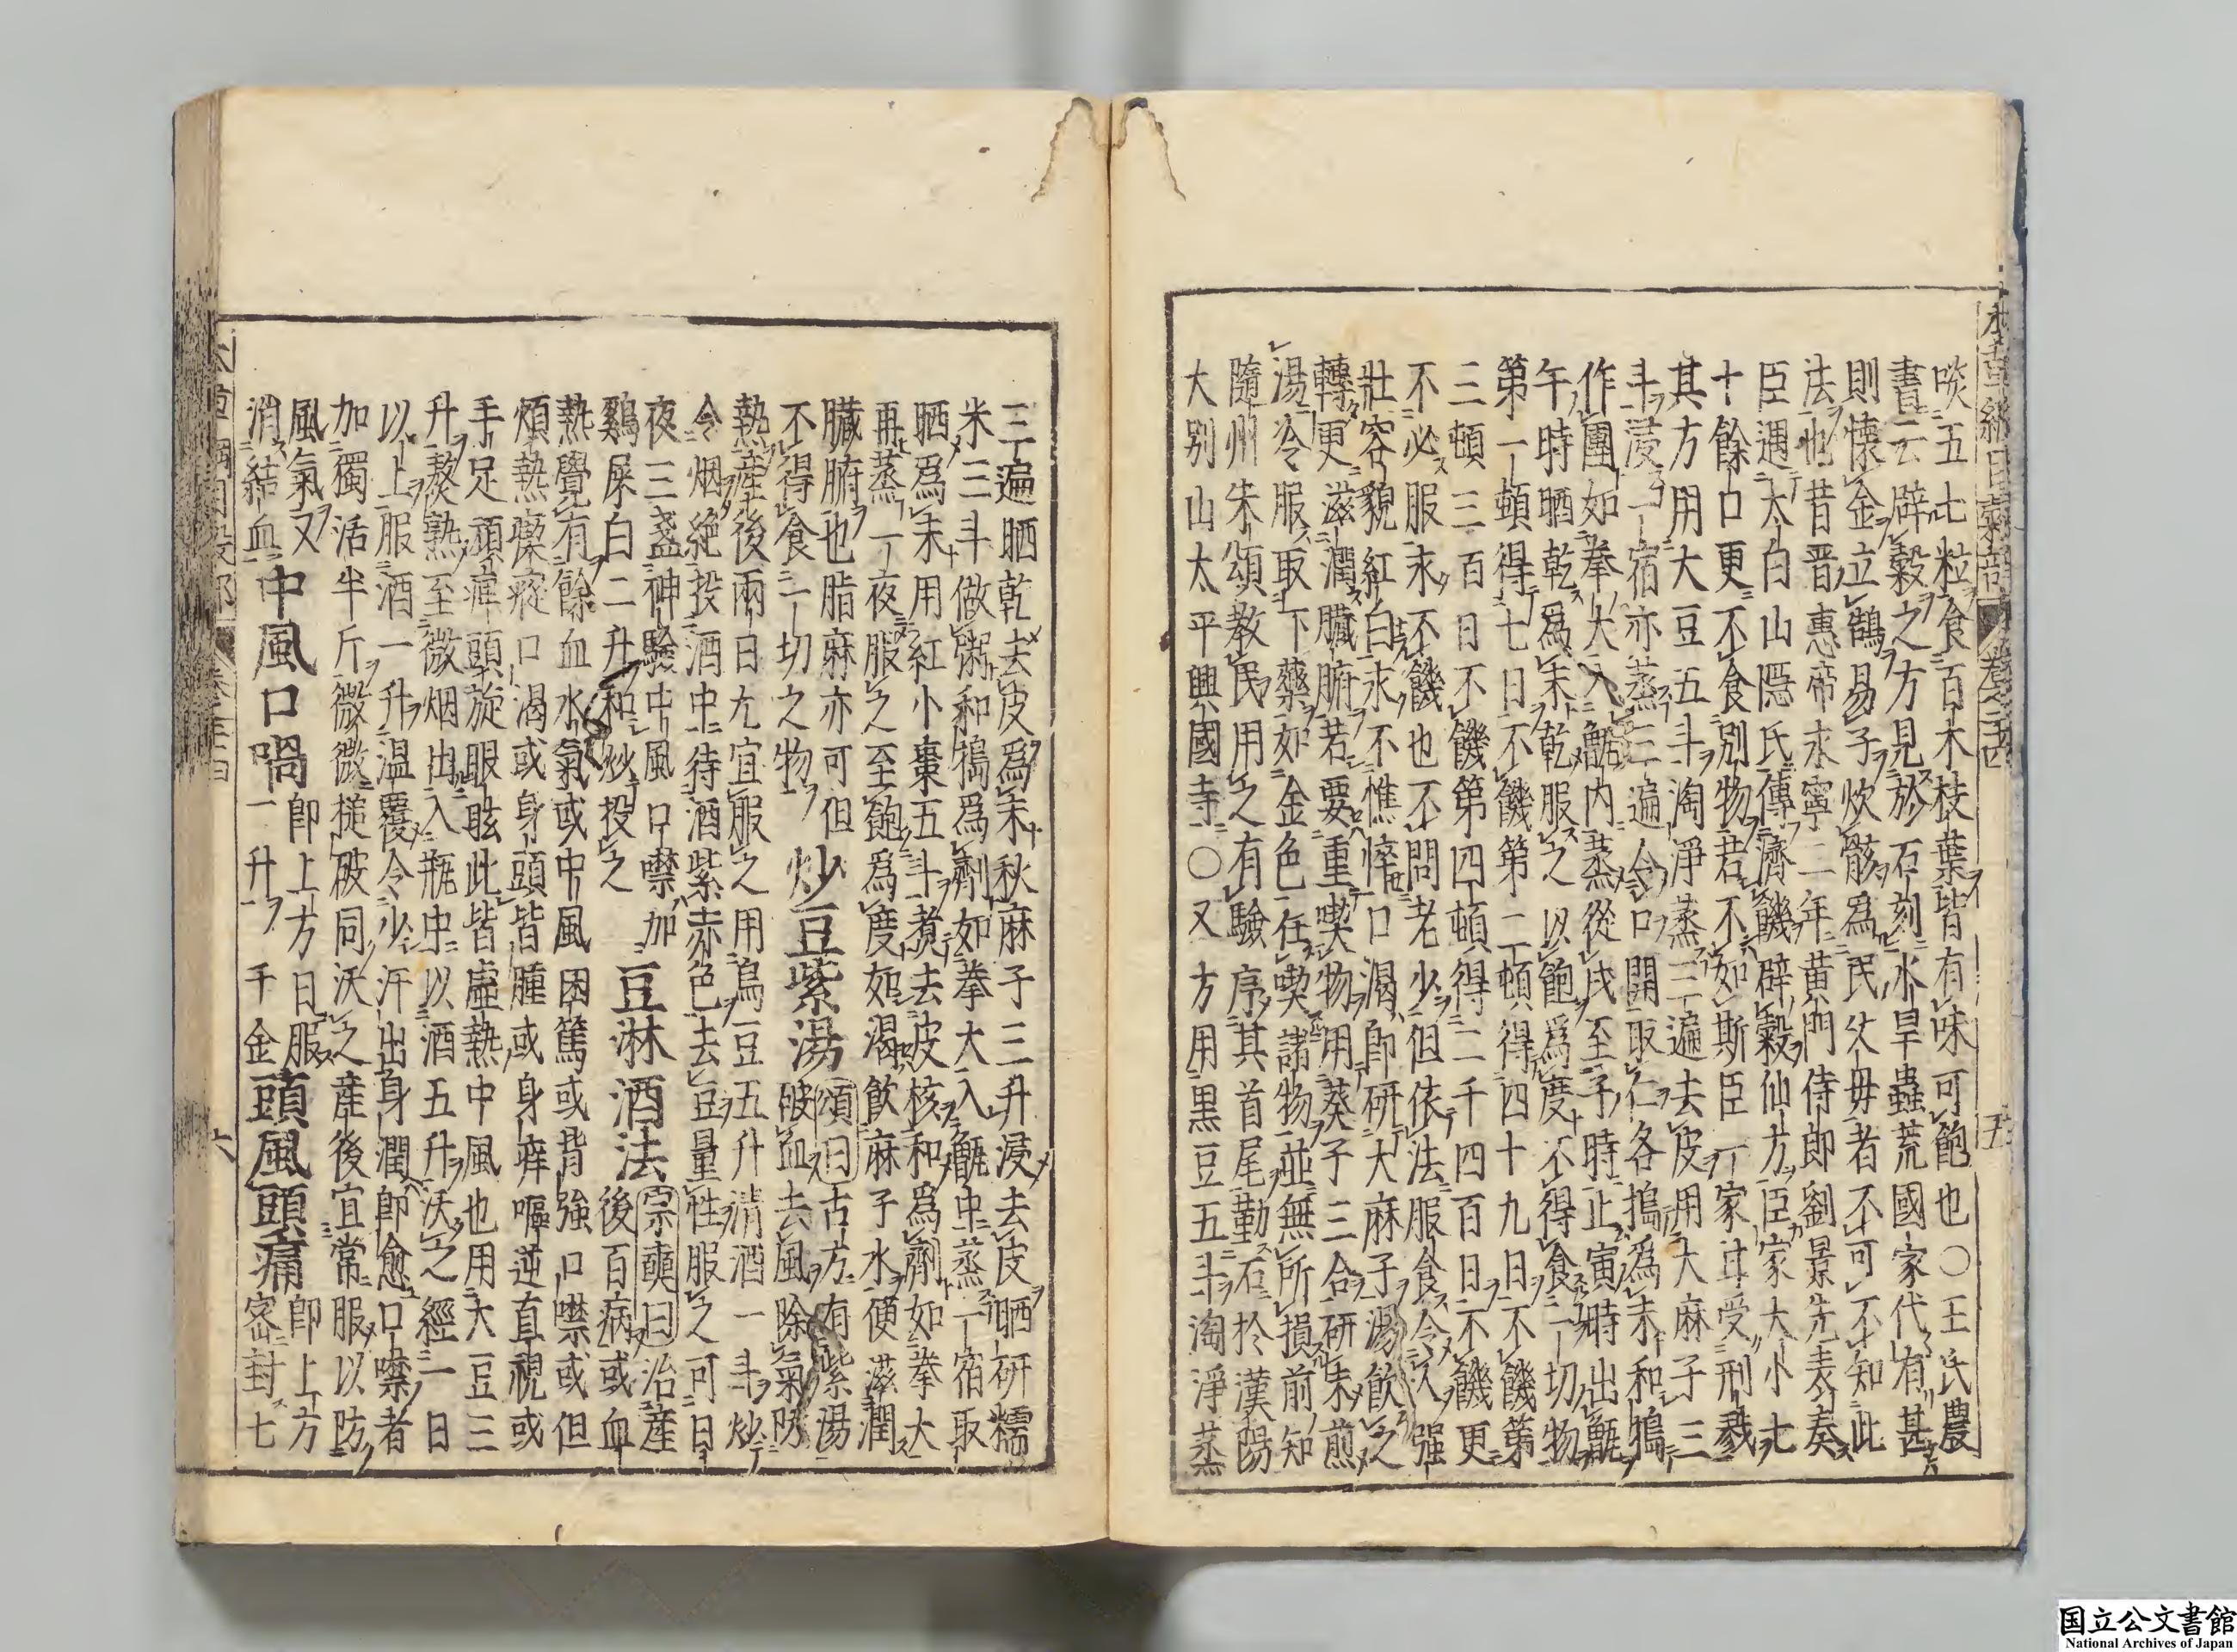 本草綱目穀部 卷之二十四 五
啖五七粒食百木枝葉皆有味可飽也○王氏農
書云辟穀之方見於石刻水旱蟲荒國家代有甚
則懷金立鵠易子炊骸爲民父毋者不可不知此
法也昔晉惠帝永寧二年黄門侍郎劉景先表奏
臣遇太白山隱氏傳濟饑辟穀仙方臣家大小七
十餘口更不食別物若不如斯臣一家甘受刑戮
其方用大豆五斗淘淨蒸三遍去皮用大麻子三
斗浸一宿亦蒸三遍令口開取仁各搗爲末和搗
作團如拳大入甑内蒸從戌至子時止寅時出甑
午時晒乾爲末乾服之以飽爲度不得食一切物
第一頓得七日不饑第二頓得四十九日不饑第
三頓三百日不饑第四頓得二千四百日不饑更
不必服永不饑也不問老少但依法服食令人强
壯容貌紅白永不憔悴口渴即研大麻子湯飲之
轉更滋潤臟腑若要重喫物用葵子三合研末煎
湯冷服取下藥如金色在喫諸物並無所損前知
隨州朱頌敎民用之有驗序其首尾勒石於漢陽
大别山太平興國寺○又方用黒豆五斗淘淨蒸
三遍晒乾去皮爲末秋麻子三升浸去皮晒研糯
米三斗做粥和搗爲劑如拳大入甑中蒸一宿取
晒爲末用紅小棗五斗煑去皮核和爲劑如拳大
再蒸一夜服之至飽爲度如渴飲麻子水便滋潤
臟腑也脂麻亦可但不得食一切之物
炒豆紫湯 頌曰古方有紫湯破血去風除氣防
熱産後兩日尤宜服之用烏豆五升清酒一斗炒
令烟絶投酒中待酒紫赤色去豆量性服之可日
夜三盞神驗中風口噤加
鷄屎白二升和炒投之
豆淋酒法 宗奭曰治産後百病或血
熱覺有餘血水氣或中風困篤或背強口噤或但
煩熱瘈瘲口渴或身頭皆腫或身痒嘔逆直視或
手足頑痺頭旋眼眩此皆虚熱中風也用大豆三
升熬熟至微烟出入瓶中以酒五升沃之經一日
以上服酒一升温覆令少汗出身潤即愈口噤者
加獨活半斤微微搥破同沃之産後宜常服以防
風氣又消結血
中風口喎 即上方日服一升千金
頭風頭痛 即上方密封七
六
国立公文書館
National Archives of Japan